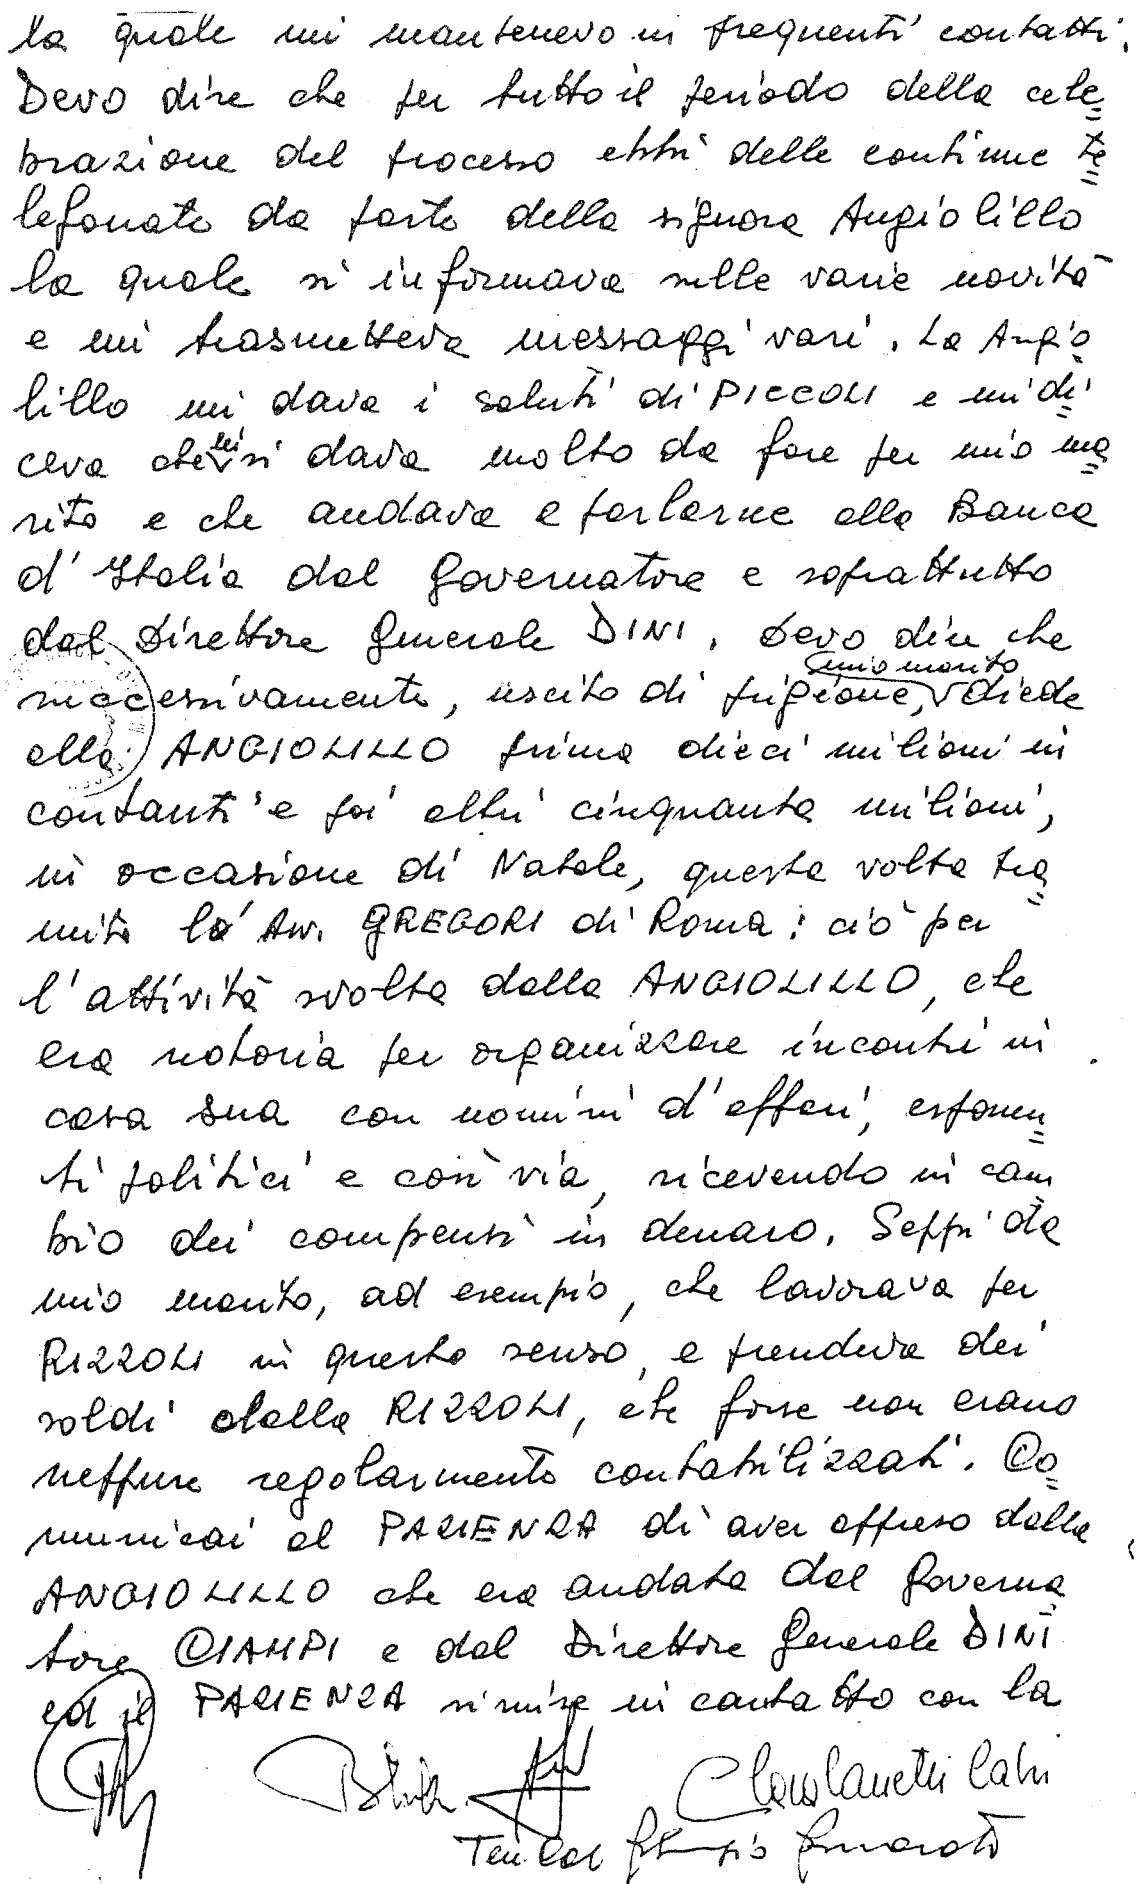 la quale mi mantenevo in frequenti contatti.
Devo dire che per tutto il periodo della cele
brazione del processo ebbi delle continue te
lefonate da parte della signora Angiolillo
la quale si informava sulle varie novità
e mi trasmetteva messaggi vari. La Angio
lillo mi dava i saluti di PICCOLI e mi di
ceva che lei si dava molto da fare per mio ma
rito e che andava a parlarne alla Banca
d'Italia dal Governatore e soprattutto
dal Direttore Generale DINI. Devo dire che
successivamente, uscito di prigione, mio marito diede
alla ANGIOLILLO prima dieci milioni in
contanti e poi altri cinquanta milioni,
in occasione di Natale, questa volta tra
mite lo Avv. GREGORI di Roma; ciò per
l'attività svolta dalla ANGIOLILLO, che
era notoria per organizzare incontri in
casa sua con uomini d'affari, esponen
ti politici e così via, ricevendo in cam
bio dei compensi in denaro. Seppi da
mio marito, ad esempio, che lavorava per
RIZZOLI in questo senso, e prendeva dei
soldi dalla RIZZOLI, che forse non erano
neppure regolarmente contabilizzati. Co
municai al PAZIENZA di aver appreso dalla
ANGIOLILLO che era andata dal Governa
tore CIAMPI e dal Direttore Generale DINI
ed il PAZIENZA si mise in contatto con la
Ten. Col.